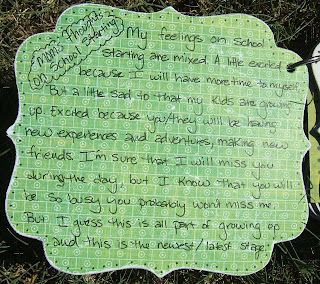 Mom's Thoughts
on school starting
My feelings on school
starting are mixed. A little excited
because I will have more time to myself
But a little sad to that my kids are growing
up. Excited because you/they will be having
new experiences and adventures, making new
friends. I'm sure that I will miss you
during the day, but I know that you will
be so busy you probably won't miss me.
But I guess this is all part of growing up
and this is the newest/latest stage.